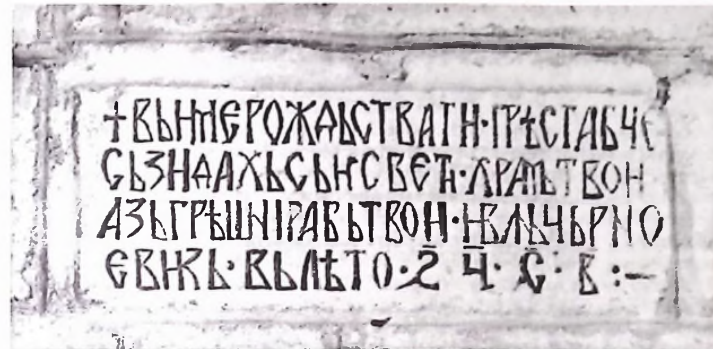 †ВЬИМЕРОЖДЬСТВАТИ·ПРѢСТАБЧЕ
СЬЗИДАХЬСЬИСВЕЋ·ХРАМЬТВОИ
АЗЬГРѢШНІРАБЬТВОИ·ИВАНЬЧЬРНО
ЕВИЌЬ·ВЬЛѢТО·